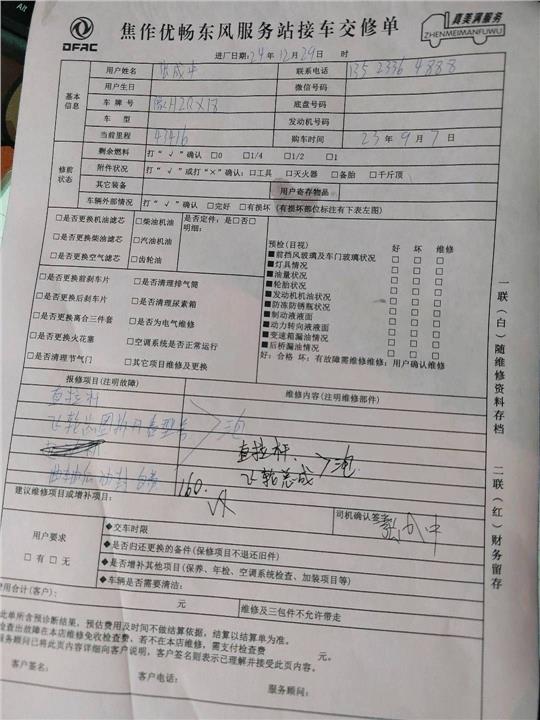 DFAC
焦作优畅东风服务站接车交修单
真美满服务
ZHENMEIMANFUWU
进厂日期:24年12月29日 时
基本信息
用户姓名 联系电话
用户生日 微信号码
车牌号 豫H2QX18 底盘号码
车 型 发动机号码
当前里程 43416 购车时间 23年9月7日
修前状态
剩余燃料 打“√”确认 □0 □1/4 □1/2 □1
附件状况 打“√”或打“×”确认:□工具 □灭火器 □备胎 □千斤顶
其它装备 用户寄存物品
车辆外部情况 打“√”确认 □完好 □有损坏(有损坏部位标注有下表左图)
□是否更换机油滤芯 □柴油机油 是否定件:是□否□
□是否更换柴油滤芯 □汽油机油 明细:
□是否更换空气滤芯 □齿轮油
□是否更换前刹车片 □是否清理排气筒
□是否更换后刹车片 □是否清理尿素箱
□是否更换离合三件套 □是否为电气维修
□是否更换火花塞 □空调系统是否正常运行
□是否清理节气门 □其它项目维修及更换
预检(目视) 好 坏 维修
■前挡风玻璃及车门玻璃状况 □ □ □
■灯具情况 □ □ □
■油量状况 □ □ □
■轮胎状况 □ □ □
■发动机机油状况 □ □ □
■防冻防锈瓶状况 □ □ □
■制动液液面 □ □ □
■动力转向液液面 □ □ □
■变速箱漏油情况 □ □ □
■后桥漏油情况 □ □ □
好:合格 坏:有故障需维修维修:用户确认维修
报修项目(注明故障) 维修内容(注明维修部件)
直拉杆
直拉杆.
飞轮总成
160.
建议维修项目或增补项目:
司机确认签字
用户要求
□有 □无
◆交车时限
◆是否归还更换的备件(保修项目不退还旧件)
◆是否增补其他项目(保养、年检、空调系统检查、加装项目等)
◆车辆是否需要清洁:
费用合计(客户): 元 维修及三包件不允许带走
此单所含预诊断结果,预估费用及时间不做结算依据,结算以结算单为准。
检查出故障在本店维修免收检查费、若不在本店维修,需支付检查费 元。
服务顾问已将此页内容详细向客户说明,客户签名则表示已理解并接受此页内容。
客户签名: 客户电话: 服务顾问:
一联(白)随维修资料存档 二联(红)财务留存